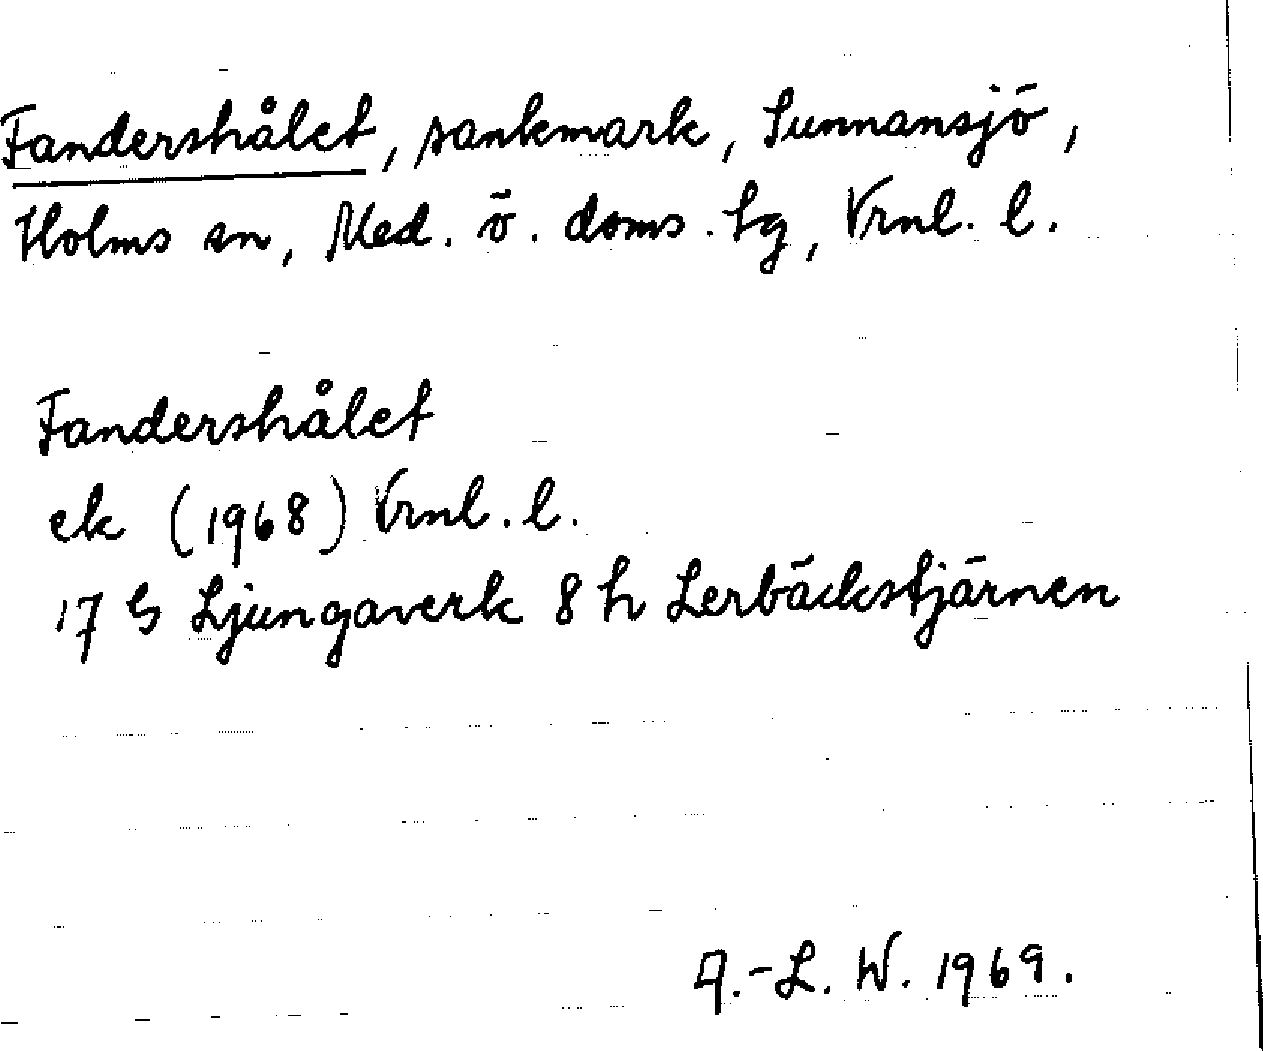 Fandershålet, sankmark, Sunnansjö,
Holms sn, Med. ö. doms. tg, Vrnl. l.
Fandershålet
ek (1968) Vrnl. l.
17 G Ljungaverk 8 h Lerbäckstjärnen
A.-L. W. 1969.